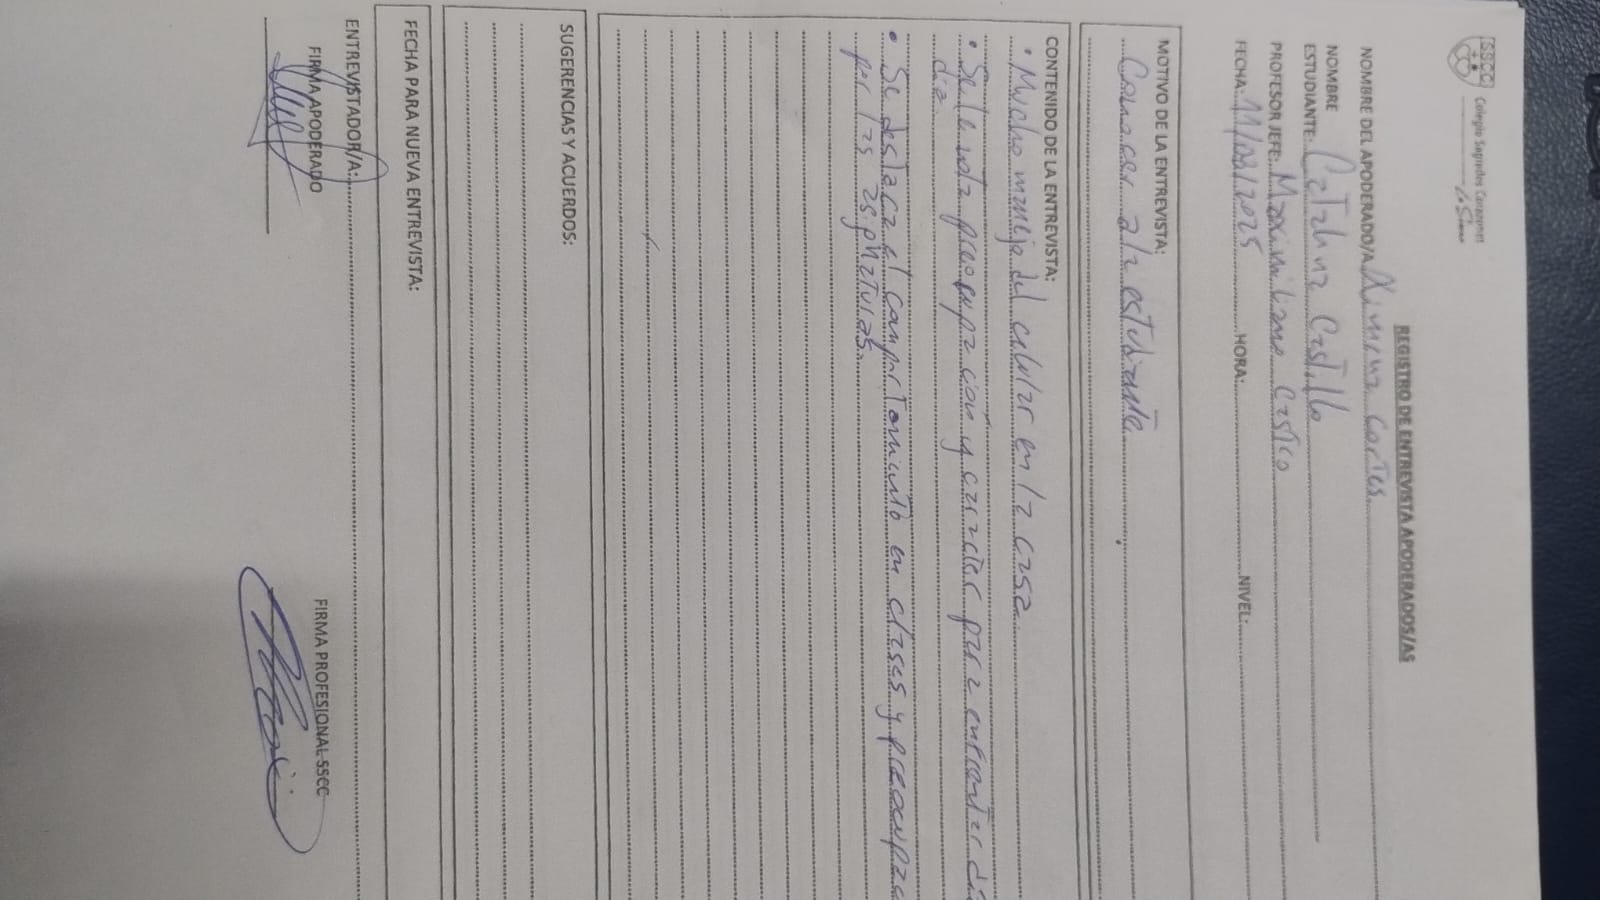 SSCC
Colegio Sagrados Corazones
La Serena
REGISTRO DE ENTREVISTA APODERADOS/AS
NOMBRE DEL APODERADO/A Ximena Cortes
NOMBRE
ESTUDIANTE: Catalina Castillo
PROFESOR JEFE: Maximiliano Castico
FECHA: 11/08/2025 HORA: NIVEL:
MOTIVO DE LA ENTREVISTA:
Conocer a la estudiante.
CONTENIDO DE LA ENTREVISTA:
• Mucho manejo del celular en la casa
• Se le nota preocupación y caracter para enfrentar dia
dia
• Se destaca el comportamiento en clases y preocupac
por las asignaturas.
SUGERENCIAS Y ACUERDOS:
FECHA PARA NUEVA ENTREVISTA:
ENTREVISTADOR/A:
FIRMA APODERADO FIRMA PROFESIONAL SSCC